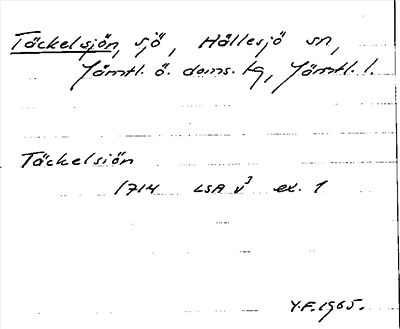 Täckelsjön, sjö, Hällesjö sn,
Jämtl. ö. doms. tg, Jämtl. l.
Täckelsiön
1714 LSA v³ ex. 1
Y.F. 1965.